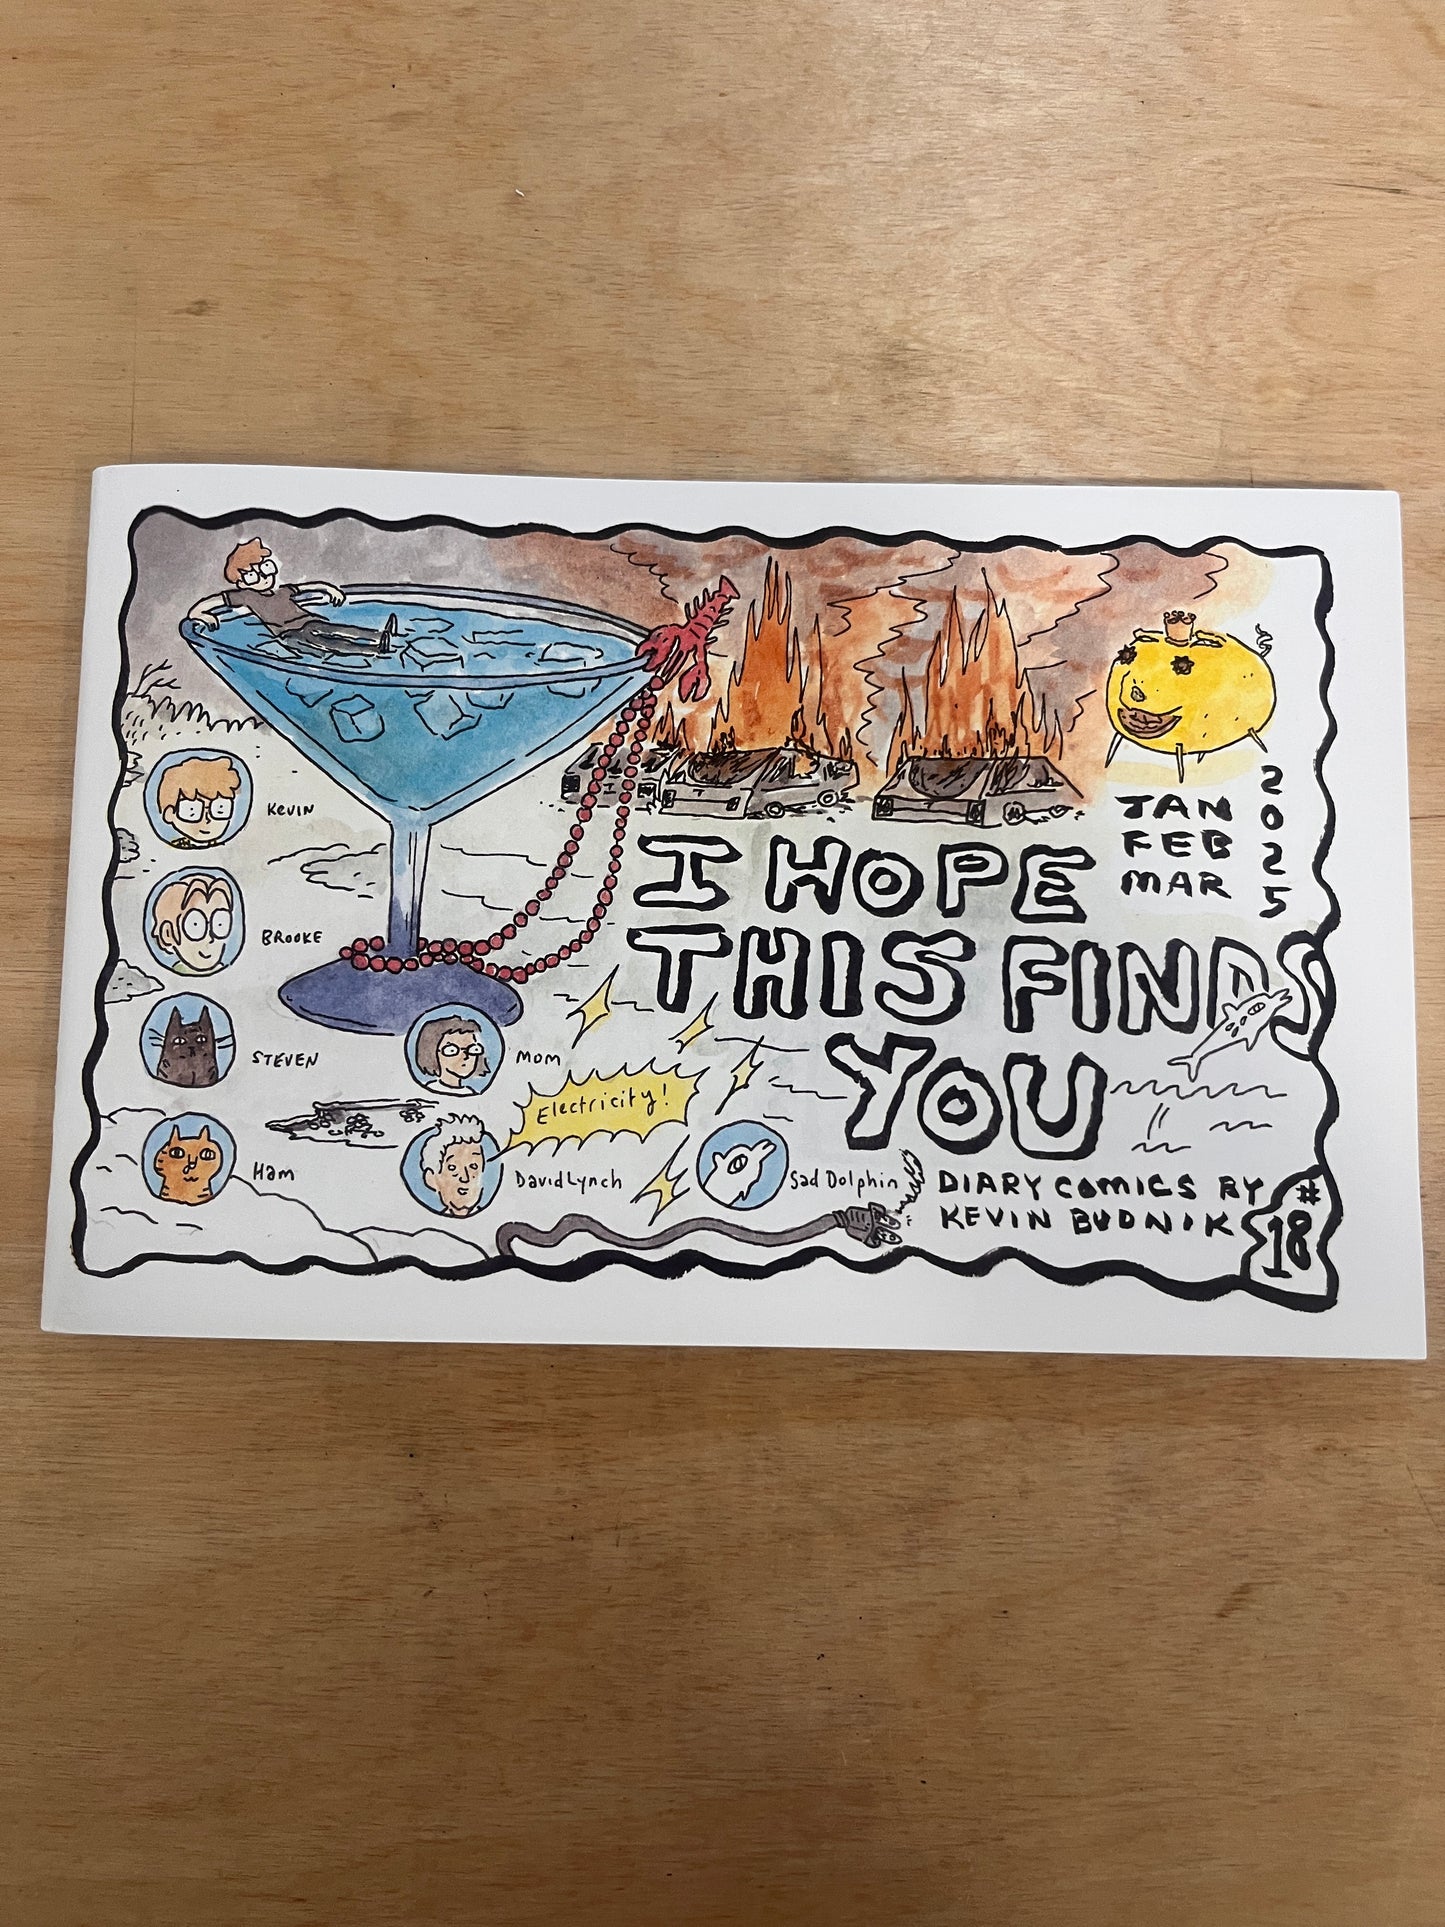 I HOPE
THIS FINDS
YOU
JAN
FEB
MAR
2025
KEVIN
BROOKE
STEVEN
MOM
Electricity!
Ham
David Lynch
Sad Dolphin
DIARY COMICS BY
KEVIN BUDNIK
#18